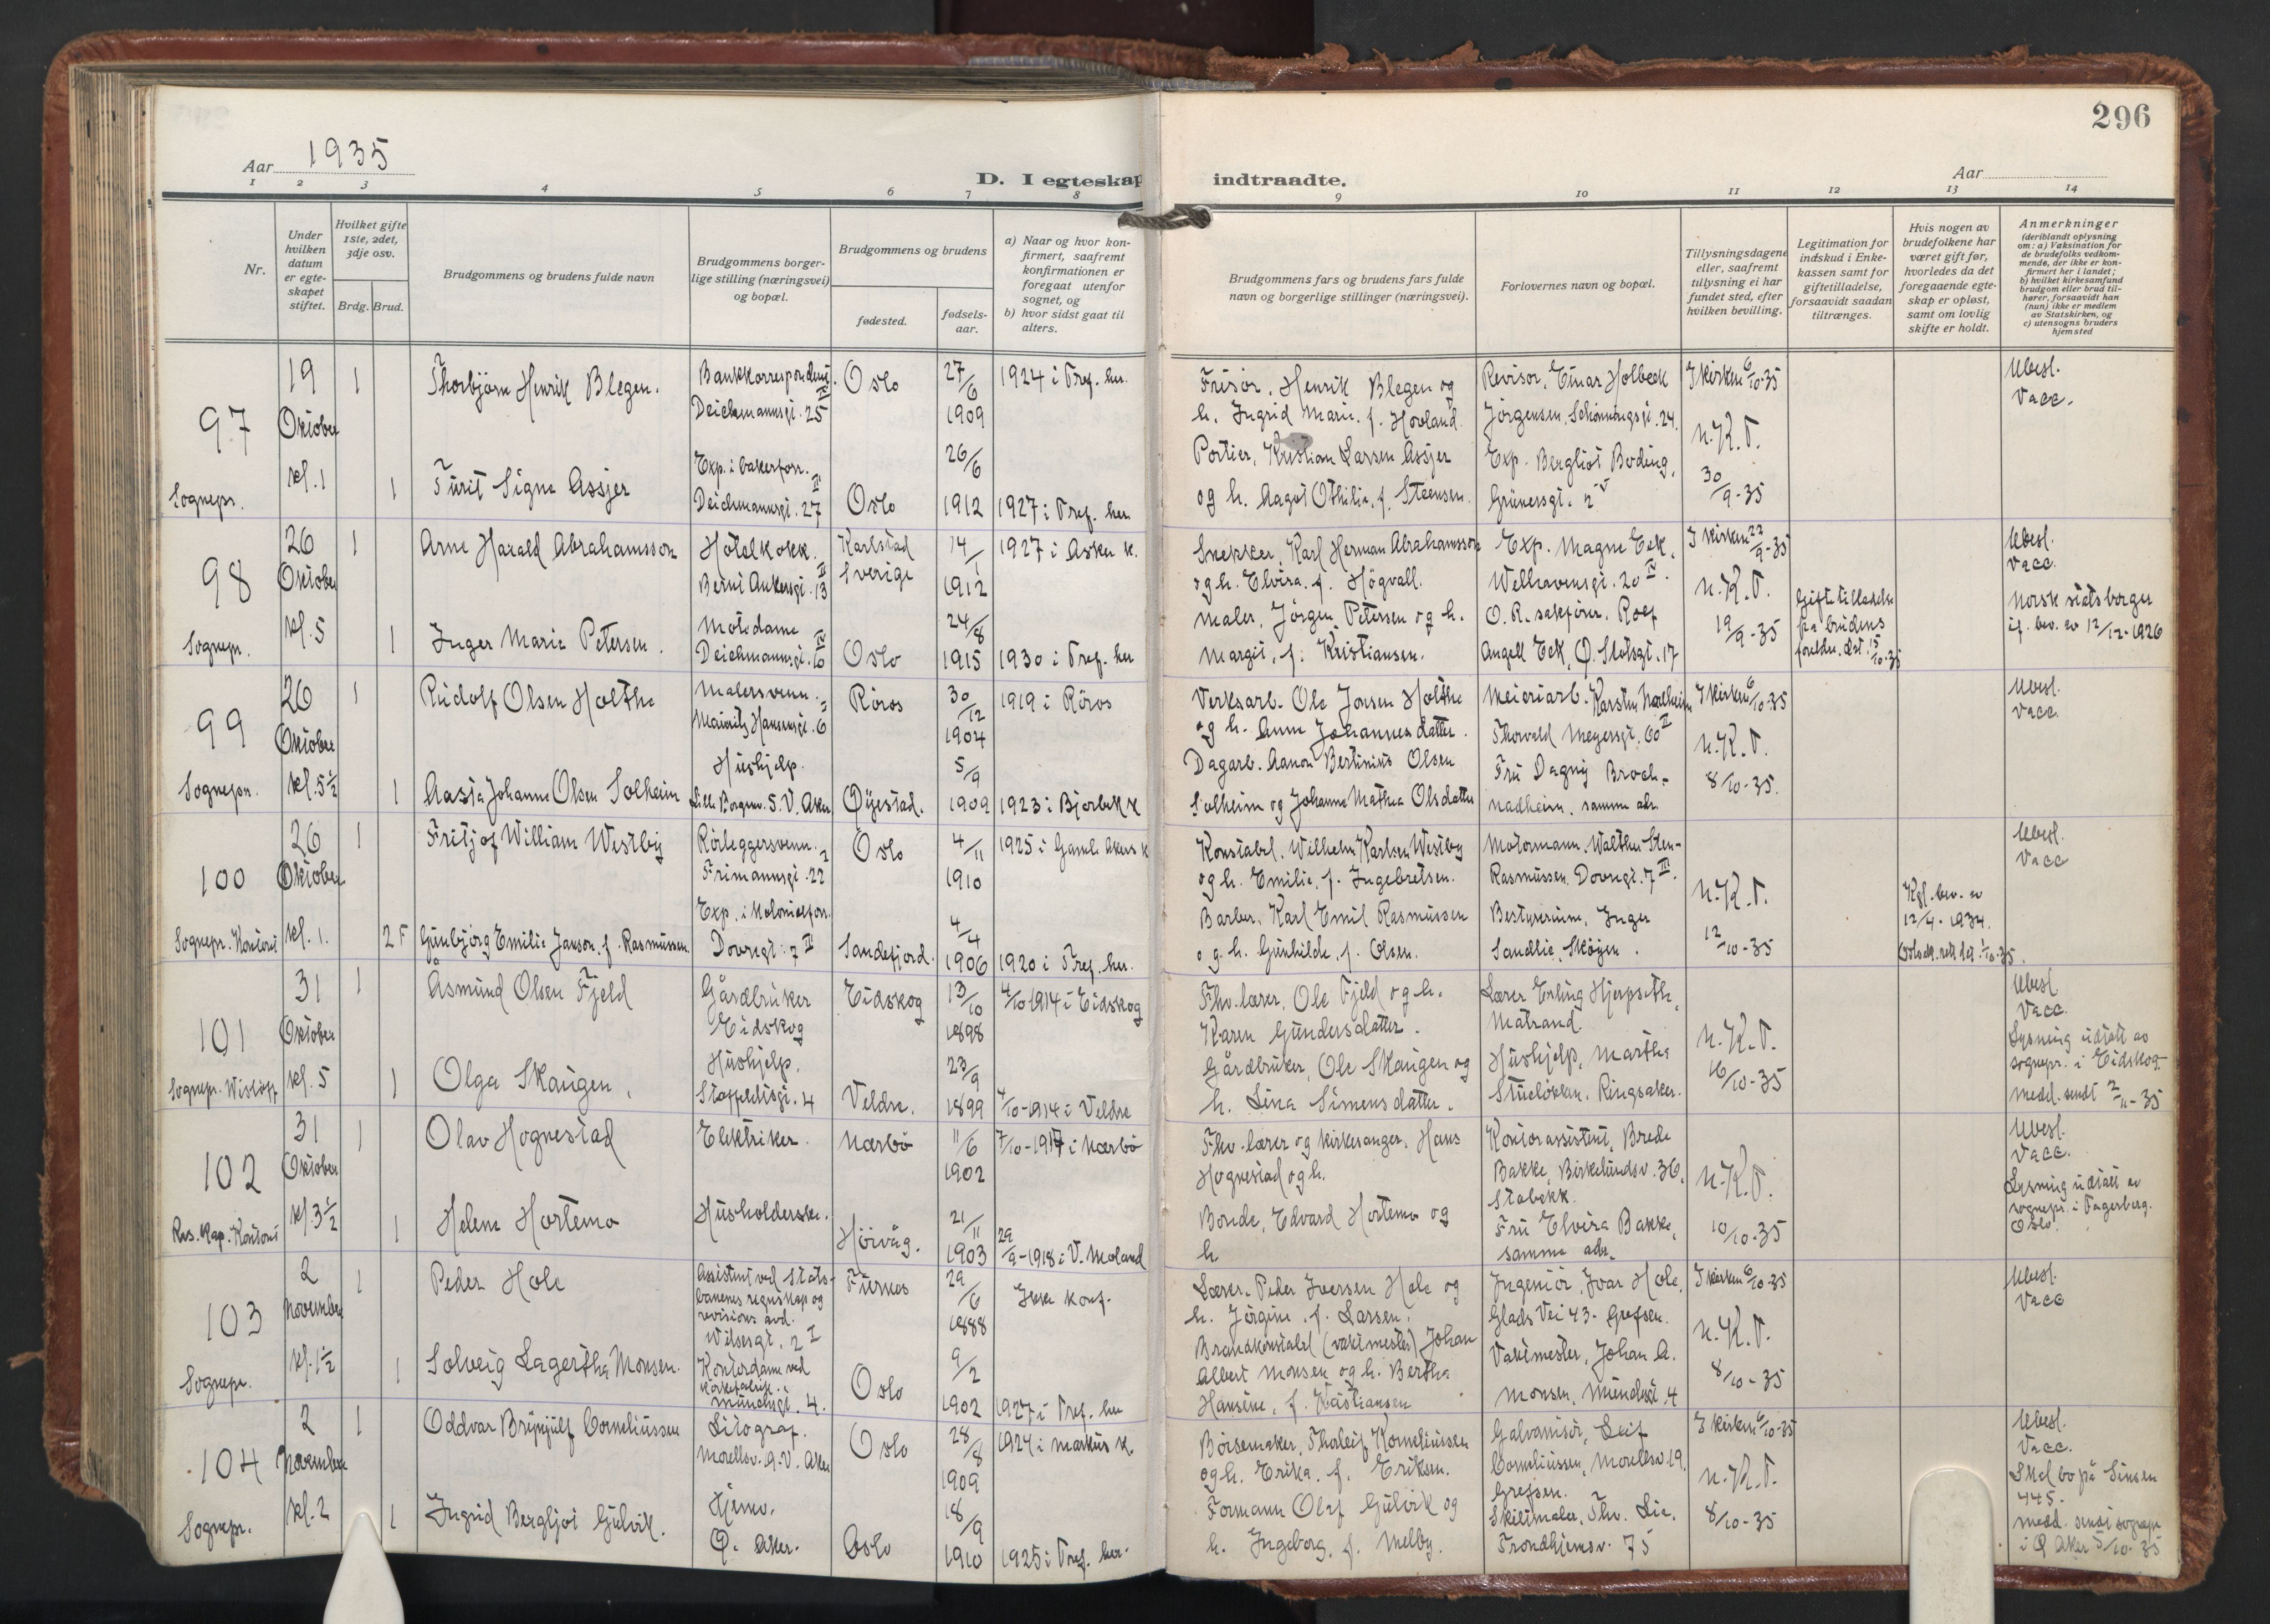 296
Aar 1935
D. I egteskap indtraadte.
Aar
1 2 3 4 5 6 7 8 9 10 11 12 13 14
Nr.
Under hvilken datum er egteskapet stiftet.
Hvilket gifte 1ste, 2det, 3dje osv.
Brdg. Brud.
Brudgommens og brudens fulde navn
Brudgommens borgerlige stilling (næringsvei) og bopæl.
Brudgommens og brudens
fødested.
fødselsaar.
a) Naar og hvor konfirmert, saafremt konfirmationen er foregaat utenfor sognet, og
b) hvor sidst gaat til alters.
Brudgommens fars og brudens fars fulde navn og borgerlige stillinger (næringsvei).
Forlovernes navn og bopæl.
Tillysningsdagene eller, saafremt tillysning ei har fundet sted, efter hvilken bevilling.
Legitimation for indskud i Enkekassen samt for giftetilladelse, forsaavidt saadan tiltrænges.
Hvis nogen av brudefolkene har været gift før, hvorledes da det foregaaende egteskap er opløst, samt om lovlig skifte er holdt.
Anmerkninger
(deriblandt oplysning om: a) Vaksination for de brudefolks vedkommende, der ikke er konfirmert her i landet;
b) hvilket kirkesamfund brudgom eller brud tilhører, forsaavidt han (hun) ikke er medlem av Statskirken, og
c) utensogns bruders hjemsted
97
Sognepr.
19 Oktober kl. 1
1
Thorbjørn Henrik Blegen.
Bankkorrespondent. Deichmannsgt. 25 IV
Oslo
27/6 1909
1924 i Tref. her.
Frisør, Henrik Blegen og
h. Ingrid Marie, f. Hovland.
Revisor, Einar Holbeck
Jørgensen, Schønningsgt. 24.
I kirken 6/10-35
N.K.T.
30/9-35
Ubesl.
Vacc.
1
Turit Signe Assjer
Exp. i bakerforr.
Deichmannsgt. 27 II
Oslo
26/6 1912
1927 i Tref. her
Portier, Kristian Larsen Assjer
og h. Aagot Othilie, f. Steensen.
Exp. Bergliot Boding,
Grünersgt. 2 V
98
Sognepr.
26 Oktober kl. 5
1
Arne Harald Abrahamsson
Hotelkokk.
Bernt Ankersgt. 13 II
Karlstad Sverige
14/1 1912
1927 i Asker k.
Snekker, Karl Herman Abrahamsson
og h. Elvira, f. Högvall.
Exp. Magne Eek,
Welhavensgt. 20 IV.
I kirken 22/9-35
N.K.T.
19/9-35
Ubesl.
Vacc.
Norsk statsborger
if. bev. av 12/12-1926
1
Inger Marie Petersen.
Motedame
Deichmannsgt. 10 IV
Oslo
24/8 1915
1930 i Tref. her
Maler, Jørgen Petersen og h.
Margit, f. Kristiansen.
O. R. sakfører, Roef
Angell Eek, Ø. Slotsgt. 17
Giftetilladelse
fra brudens
foreldre, dat. 15/10-35
99
Sognepr.
26 Oktober kl. 5½
1
Rudolf Olsen Holthe
Malersvenn.
Mauritz Hansensgt. 6 II
Røros
30/12 1904
1919 i Røros
Verksarb. Ole Jonsen Holthe
og h. Anne Johannesdatter.
Meieriarb. Karsten Nadheim
Thorvald Meyersgt. 60 II
I kirken 6/10-35
N.K.T.
8/10-35.
Ubesl.
Vacc.
1
Aasta Johanne Olsen Solheim
Hushjelp.
Lille Borgenv. 5. V. Aker
Øyestad.
5/9 1909
1923 i Bjorbekk
Dagarb. Aanon Bertinius Olsen
Solheim og Johanne Mathea Olsdatter
Fru Dagny Broch-
nadheim, samme adr.
100
Sognepr. Kontori
26 Oktober kl. 1.
1
Fritjof William Westby
Rørleggersvenn.
Frimannsgt. 22
Oslo
4/11 1910
1925 i Gamle Akers k
Konstabel, Wilhelm Karlsen Westby
og h. Emilie, f. Ingebretsen.
Motormann, Walther Sten-
Rasmussen, Dovregt. 7 III.
N.K.T.
12/10-35
Ubesl.
Vacc
2 F
Gunbjørg Emilie Janson, f. Rasmussen.
Exp. i kolonialforr.
Dovregt. 7 III
Sandefjord.
4/4 1906
1920 i Tref. her.
Barber, Karl Emil Rasmussen
og h. Gunhilde, f. Olsen.
Bestyrerinne, Inger
Sandlie, Skøyen.
Kgl. bev. av
12/4-1934.
101
Sognepr.
31 Oktober kl. 5
1
Åsmund Olsen Fjeld
Gårdbruker
Eidskog
Eidskog
13/10 1898
4/10 1914 i Eidskog
Fhv. lærer, Ole Fjeld og h.
Karen Gundersdatter.
Lærer Erling Hjerpseth,
Matrand.
N.K.T.
16/10-35
Ubesl
Vacc.
Lysning udstått av
sognepr. i Eidskog
medd. sendt 2/11-35
1
Olga Skaugen,
Hushjelp.
Stoffeldtsgt. 4
Veldre.
23/9 1899
4/10-1914 i Veldre
Gårdbruker, Ole Skaugen og
h. Lina Simensdatter.
Hushjelp, Martha
Stuelökken, Ringsaker.
102
Res. Kap. Kontori
31 Oktober kl. 3½
1
Olav Hognestad
Elektriker.
Nærbø
11/6 1902
7/10-1917 i Nærbø
Fhv. lærer og kirkesanger, Hans
Hognestad og h.
Kontorassistent, Brede
Bakke, Birkelundsv. 36,
Stabekk.
N.K.T.
10/10-35
Ubesl.
Vacc.
Lysning udstått av
sognepr. i Fagerborg.
Oslo.
1
Helene Hortemo
Husholderske.
Hövåg.
21/11 1903
29/9-1918 i V. Moland
Bonde, Edvard Hortemo og
h
Fru Elvira Bakke,
samme adr.
103
Sognepr.
2 November kl. 1½
1
Peder Hole
Assistent ved Stats-
banenes regnskap og
revisions avd.
Wilsesgt. 2 I
Furnes
29/6 1888
Ikke konf.
Lærer, Peder Iversen Hole og
h. Jørgine, f. Larsen.
Ingeniør, Ivar Hole,
Glads Vei 43. Grefsen.
I kirken 6/10-35
N.K.T.
8/10-35
Ubesl.
Vacc
1
Solveig Lagertha Monsen.
Kontordame ved
Münchsgt. 4.
Oslo
9/2 1902
1927 i Tref. her
Brandkonstabel (vaktmester) Johan
Albert Monsen og h. Bertha
Hansine, f. Kristiansen
Vaktmester, Johan A.
Monsen, Münchsgt. 4
104
Sognepr.
2 November kl. 2
1
Oddvar Brynjulf Corneliussen
Litograf.
Morellsv. 19. V. Aker
Oslo
28/8 1909
1924 i Markus k.
Børsemaker, Thorleif Korneliussen
og h. Erika, f. Eriksen.
Galvanisør, Leif
Corneliussen, Morellsv. 19,
Grefsen.
I kirken 6/10-35
N.K.T.
8/10-35
Ubesl.
Vacc.
Skal bo på Sinsen
445.
medd. sendt sognepr.
i Ø Aker 5/10-35
1
Ingrid Bergljot Gulvik.
Hjemv.
Ø. Aker.
Oslo
18/9 1910
1925 i Tref. her.
Formann Olaf Gulvik og
h. Ingeborg, f. Melby.
Skiltmaler, Thv. Lie,
Trondhjemsv. 75